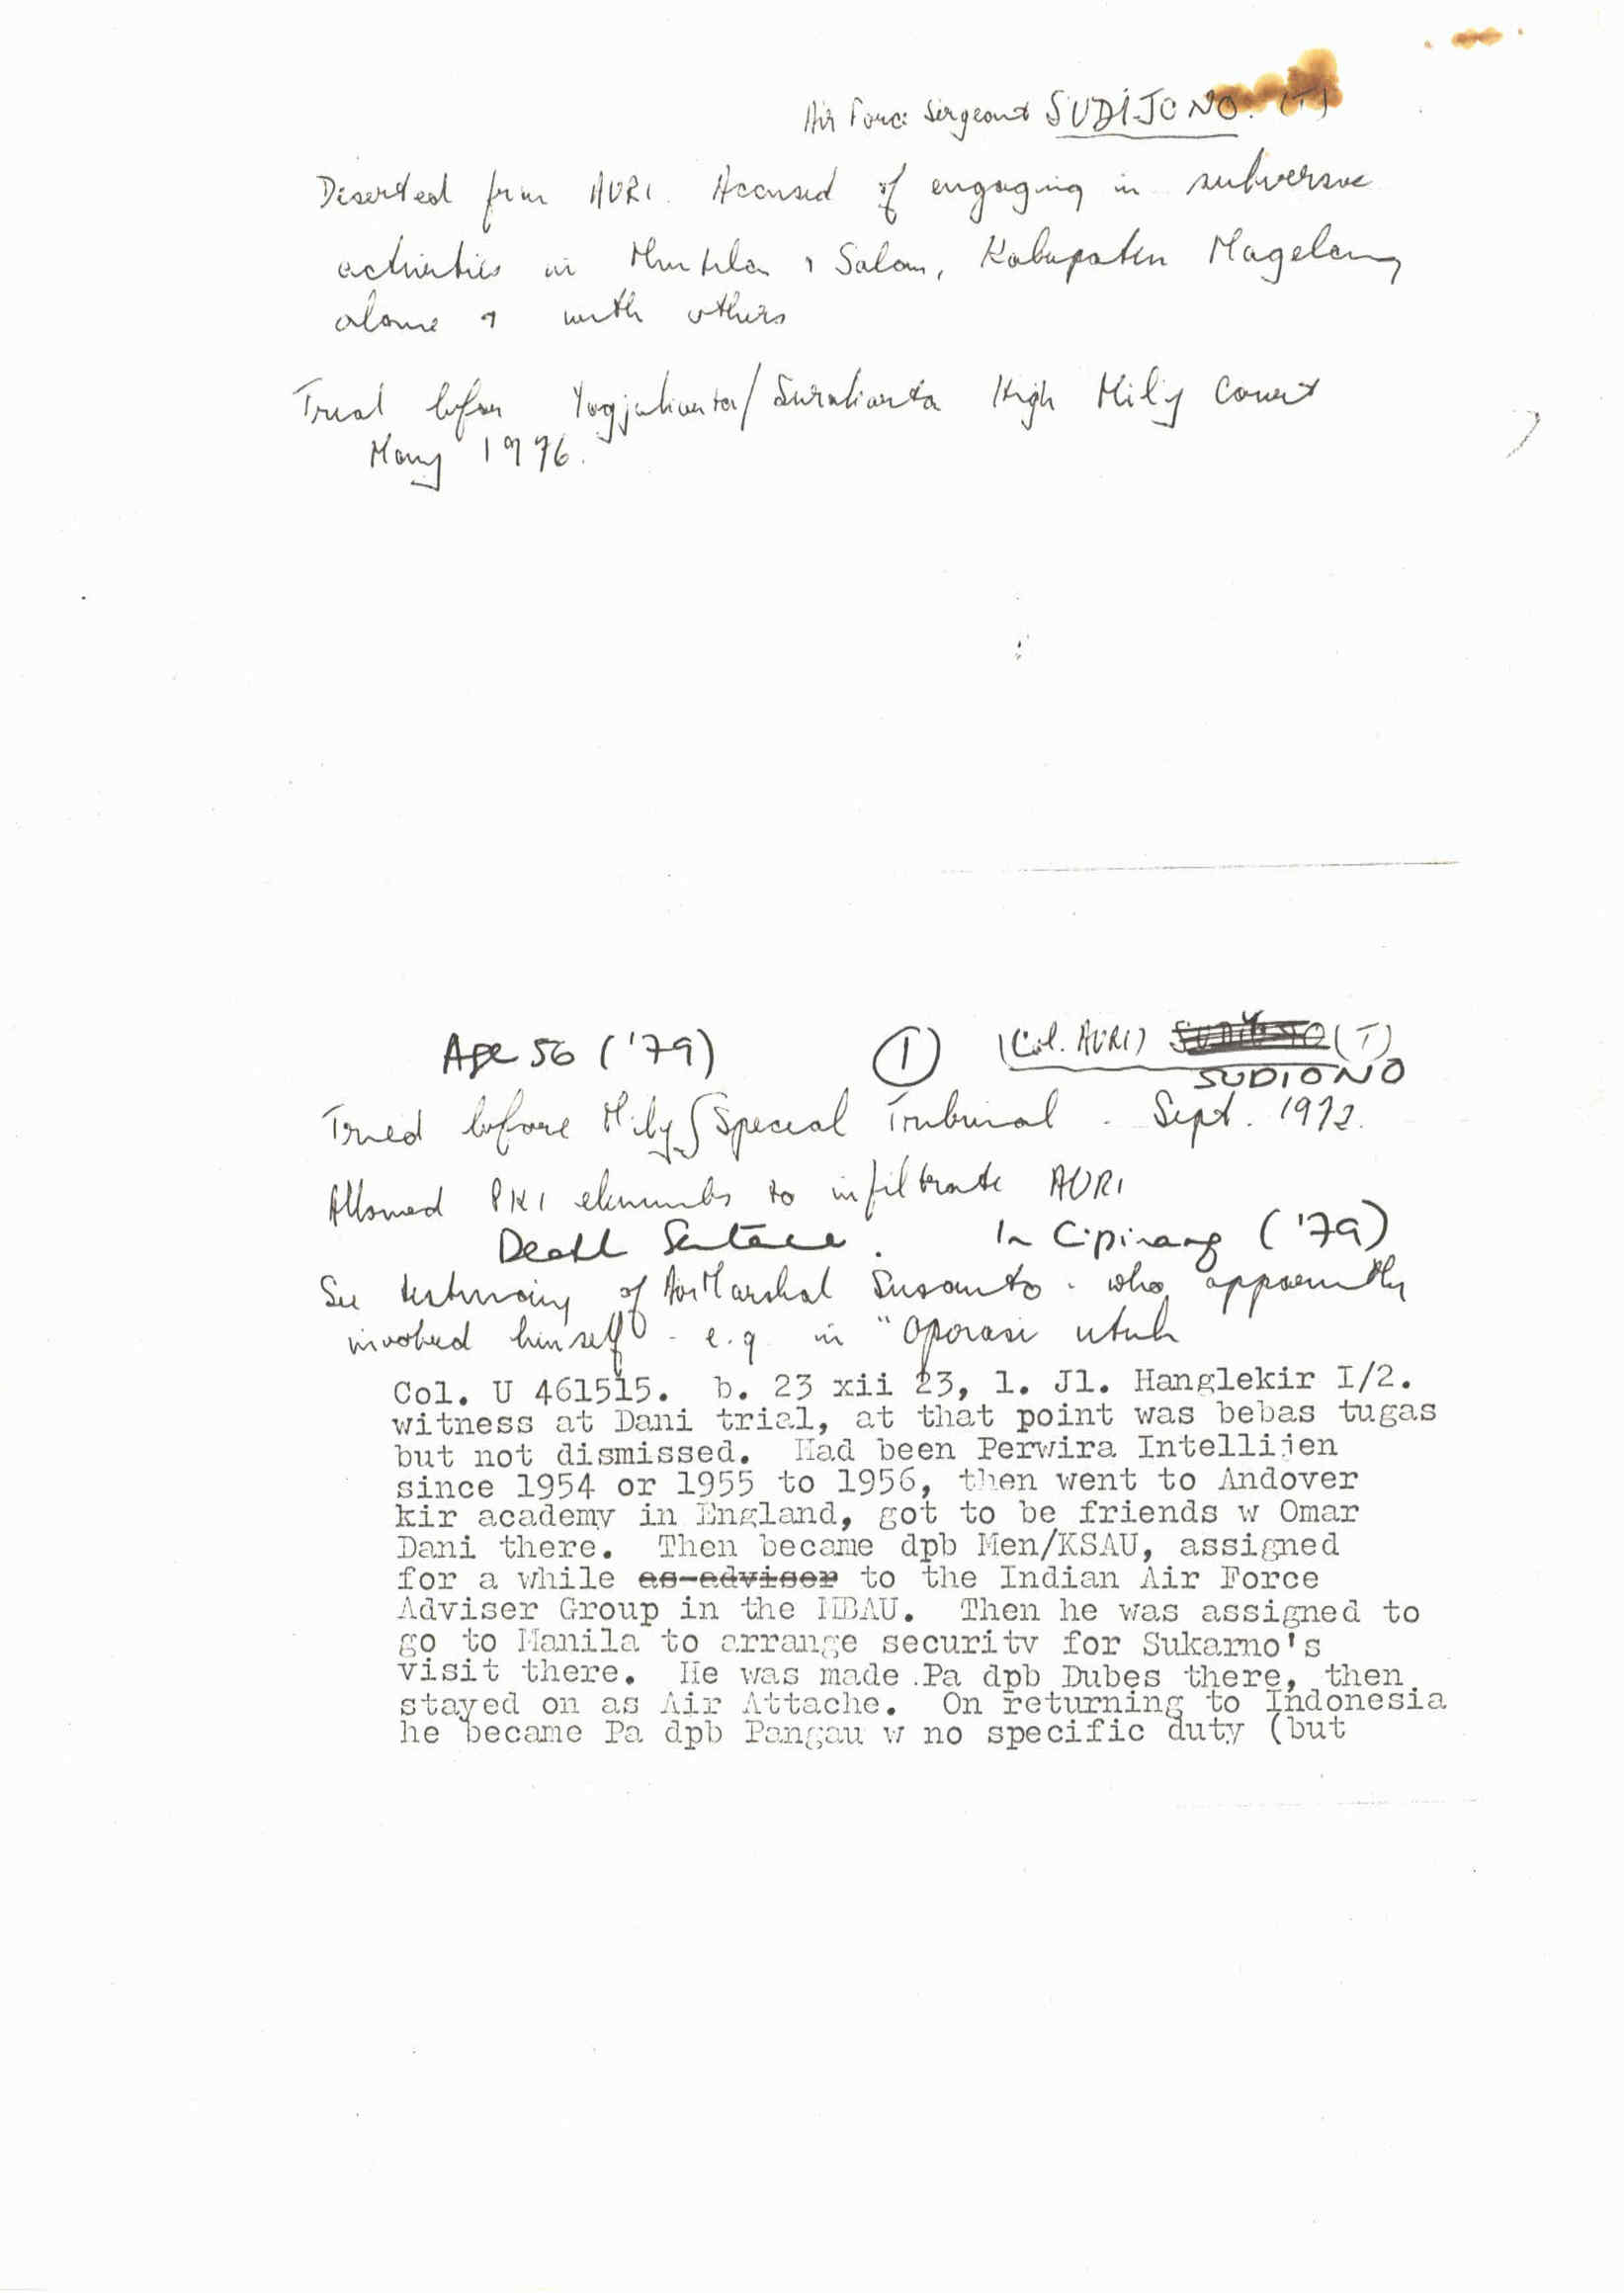 Air Force Sergeant SUDIJONO. (T)
Deserted from AURI. Accused of engaging in subversive
activities in Muntilan & Salam, Kabupaten Magelang
alone & with others
Trial before Yogjakarta/Surakarta High Mily Court
May 1976.
Age 56 ('79) 1 (Col. AURI) (T)
SUDIONO
Tried before Mily Special Tribunal - Sept. 1972.
Allowed PKI elements to infiltrate AURI
Death Sentence. In Cipinang ('79)
See testimony of Air Marshal Susanto - who apparently
involved himself - e.g. in "Operasi utuh
Col. U 461515. b. 23 xii 23, l. Jl. Hanglekir I/2.
witness at Dani trial, at that point was bebas tugas
but not dismissed. Had been Perwira Intellijen
since 1954 or 1955 to 1956, then went to Andover
kir academy in England, got to be friends w Omar
Dani there. Then became dpb Men/KSAU, assigned
for a while as adviser to the Indian Air Force
Adviser Group in the MBAU. Then he was assigned to
go to Manila to arrange security for Sukarno's
visit there. He was made Pa dpb Dubes there, then
stayed on as Air Attache. On returning to Indonesia
he became Pa dpb Pangau w no specific duty (but